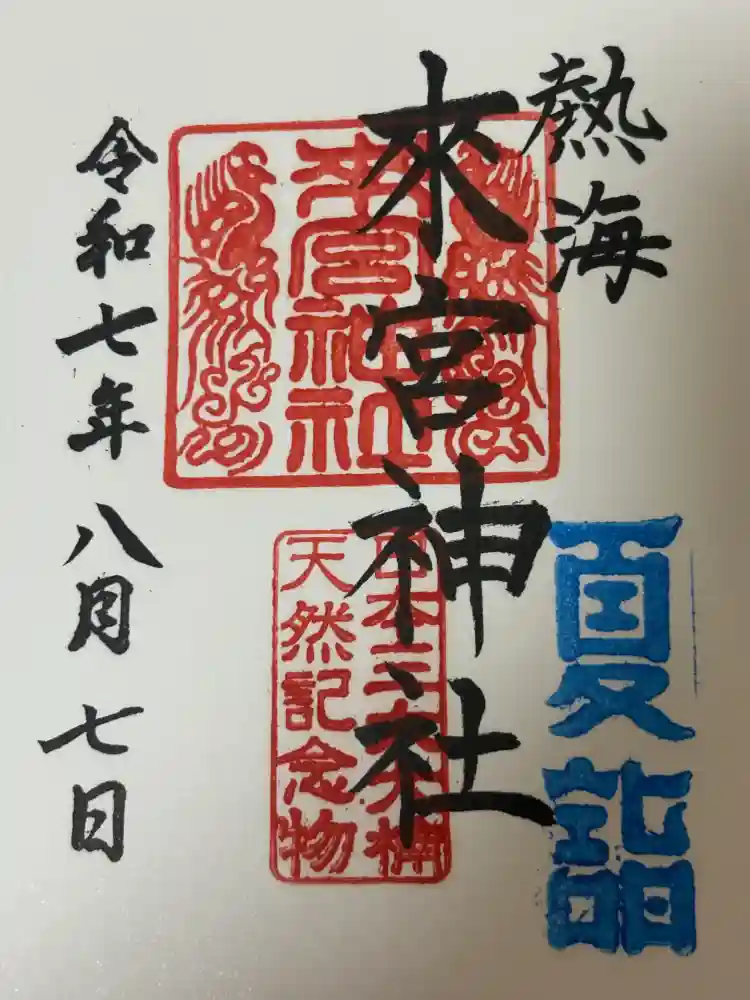 熱海
來宮神社
夏詣
來宮神社
日本三大樟
天然記念物
令和七年八月七日